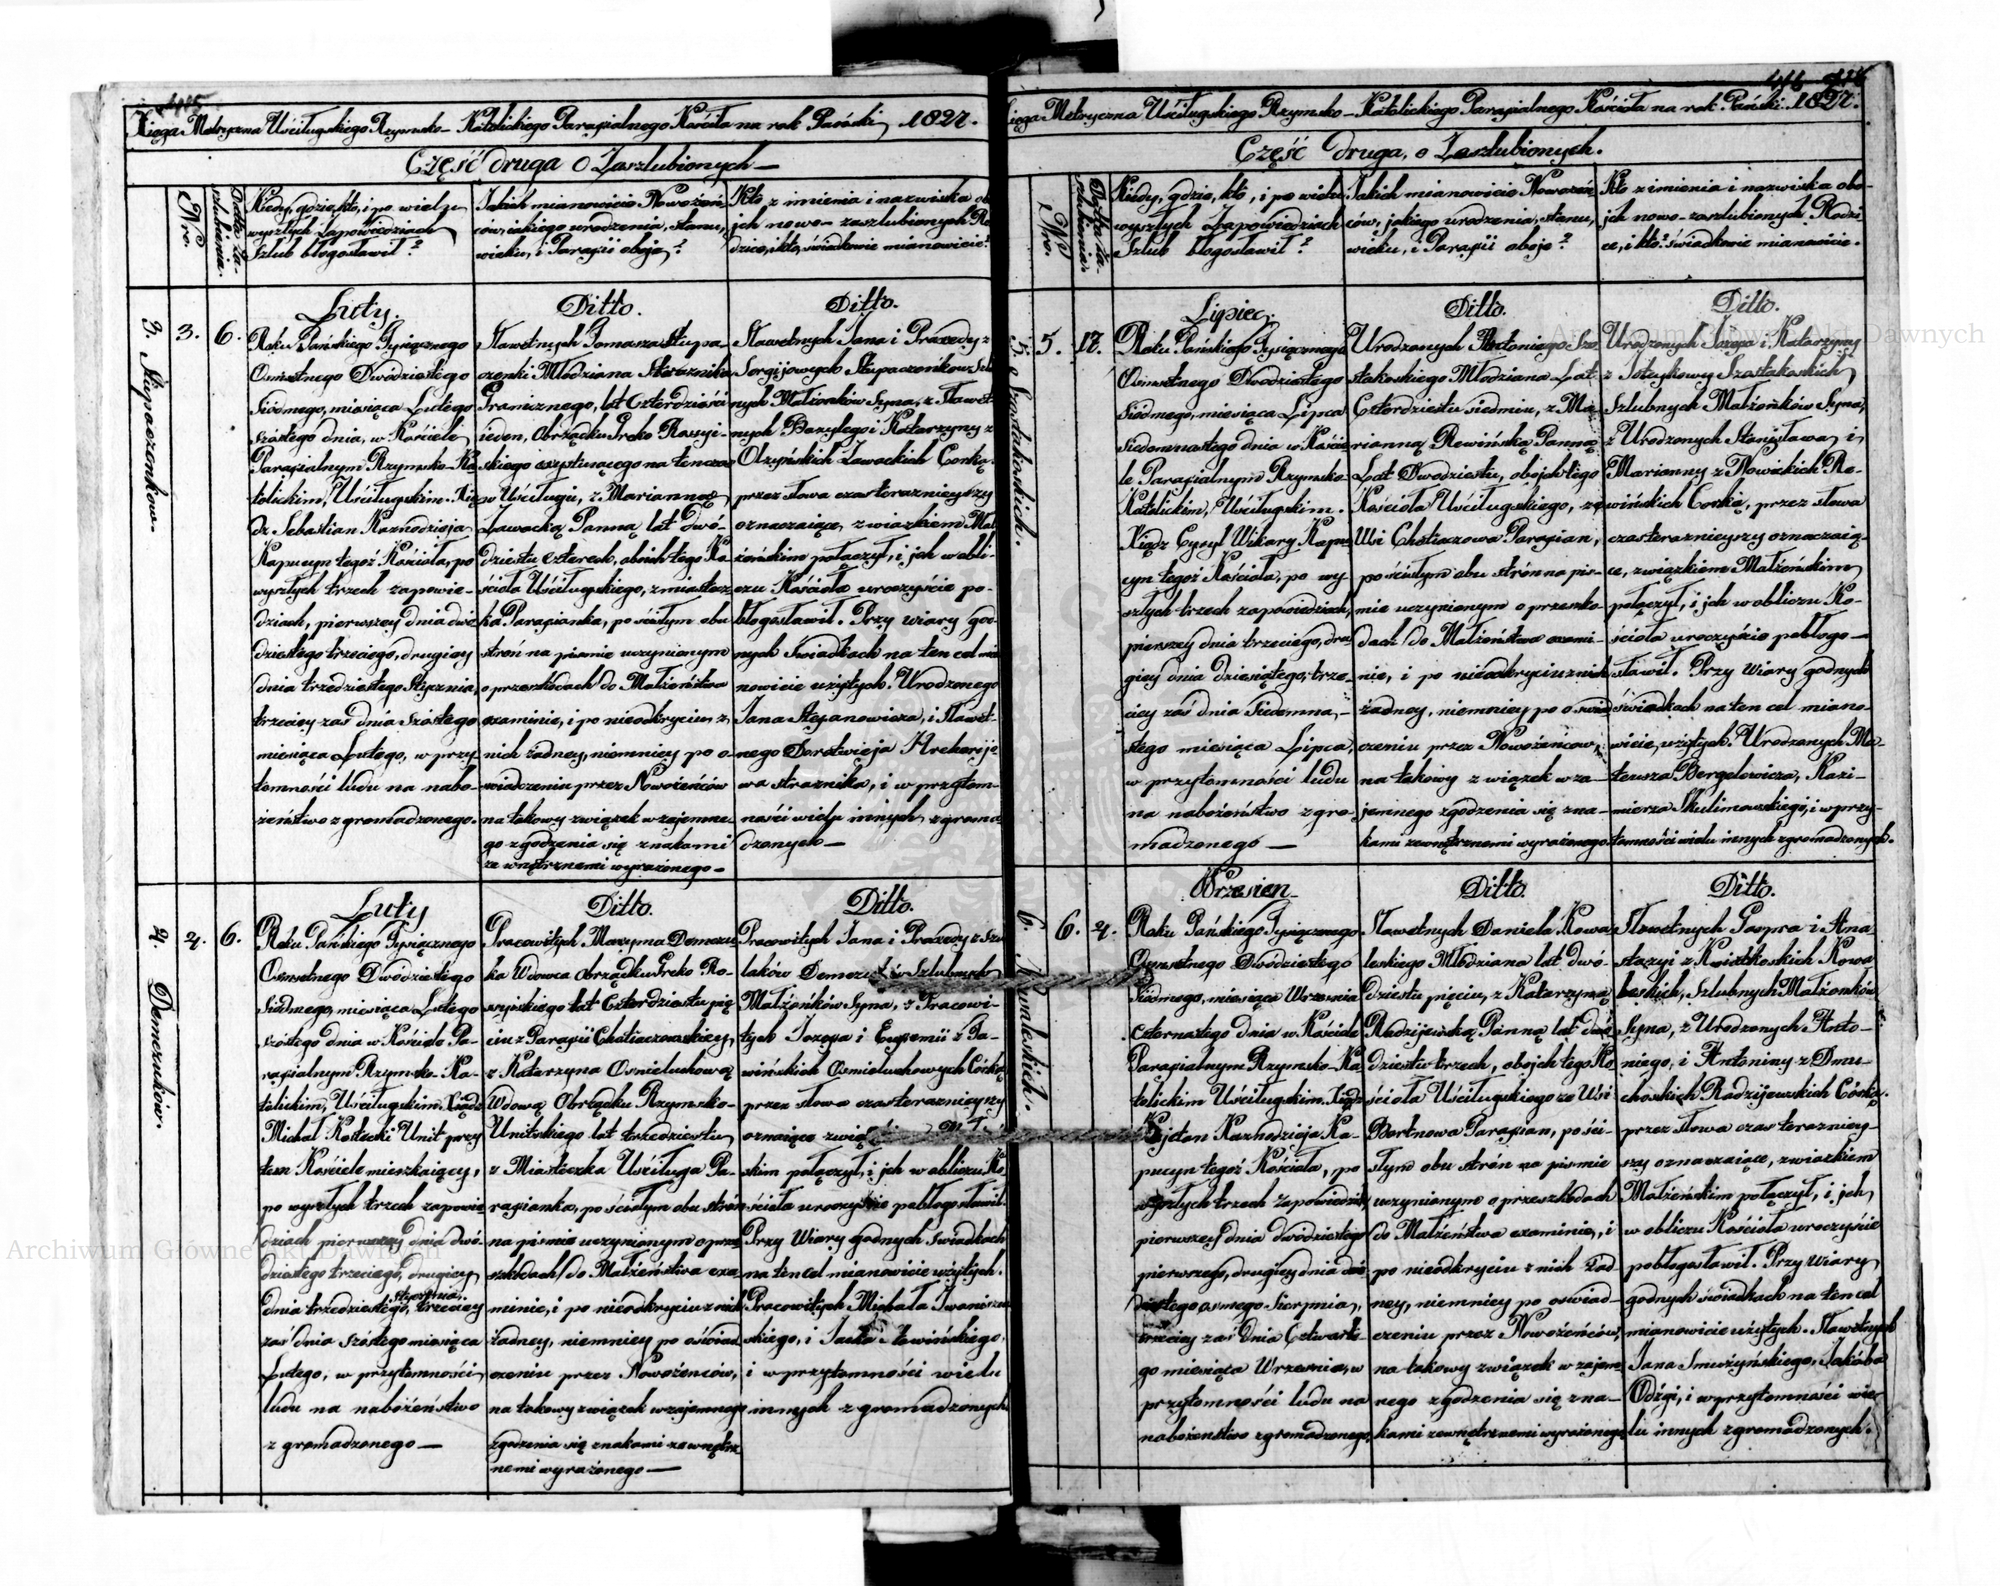 415
Xięga Metryczna Uściługskiego Rzymsko-Katolickiego Parafialnego Kościoła na rok Pański 1827.
Część druga o Zaszlubionych
Nro.
Datta zaszlubienia.
Kiedy, gdzie, kto, i po wielu
wyszłych Zapowiedziach
Szlub błogosławił?
Jakich mianowicie Nowożeń-
ców, jakiego urodzenia, stanu,
wieku, i Parafii oboje?
Kto z imienia i nazwiska obo-
jch nowo-zaszlubionych Ro-
dzice, i kto, świadkowie mianowicie?
3. Słupaczenków.
3.
6.
Luty.
Roku Pańskiego Tysiącznego
Ośmsetnego Dwódziestego
Siódmego, miesiąca Lutego
szóstego dnia, w Kościele
Parafialnym Rzymsko-Ka-
tolickim, Uściługskim. Xią-
dz Sebastian Kaznodzieja
Kapucyn tegoż Kościoła, po
wyszłych trzech zapowie-
dziach, pierwszey dnia dwó-
dziestego trzeciego, drugiey
dnia trzedziestego Stycznia,
trzeciey zaś dnia szóstego
miesiąca Lutego, w przy-
tomności ludu na nabo-
żeństwo zgromadzonego.
Ditto.
Sławetnych Tomasza Słupa-
czenki Młodziana Strażnika
Granicznego, lat Czterdzieści
ieden, Obrządku Greko Rossyi-
skiego assystuiącego na tenczas
w Uściługu, z Marianną
Zawacką Panną lat dwó-
dziestu czterech, oboich tego Ko-
ścioła Uściługskiego, z miastecz-
ka Parafianka, po ścisłym obu
stron na pismie uczynionym
o przeszkodach do Małżeństwa
examinie, i po nieodkryciu z
nich żadney, niemniey po o-
świadczeniu przez Nowożeńców
na takowy związek wzajemne-
go zgodzenia się znakami
ze wnętrznemi wyrażonego
Ditto.
Sławetnych Jana i Praxedy z
Sergijowych Słupaczenków Szlu-
nych Małżonków Syna, z Sławet-
nych Bazylego i Katarzyny z
Olzyńskich Zawackich Corkę,
przez słowa czas terazniejszy
oznaczaiące, związkiem Mał-
żeńskim połączył, i jch w obli-
czu Kościoła uroczyście po-
błogosławił. Przy wiary god-
nych Świadkach na ten cel mia-
nowicie użytych. Urodzonego
Jana Stefanowicza, i Sławet-
nego Dorotwieja Hrehorije-
wa strażnika, i w przytom-
ności wielu innych zgroma-
dzonych
4. Demczuków.
4.
6.
Luty
Roku Pańskiego Tysiącznego
Ośmsetnego Dwódziestego
Siódmego, miesiąca Lutego
szóstego dnia w Kościele Pa-
rafialnym Rzymsko-Ka-
tolickim, Uściługskim. Xiądz
Michał Kostecki Unit przy
tem Kościele mieszkaiący,
po wyszłych trzech zapowie-
dziach pierwszey dnia dwó-
dziestego trzeciego, drugiey
dnia trzedziestego, Stycznia, trzeciey
zaś dnia szóstego miesiąca
Lutego, w przytomności
ludu na nabożeństwo
zgromadzonego
Ditto.
Pracowitych Maxyma Demczu-
ka Wdowca Obrządku Greko Ro-
syiskiego lat Czterdziestu pię-
ciu z Parafii Chotiaczowskiey,
z Katarzyna Ośmieluchową
Wdową Obrządku Rzymsko-
Unitskiego lat trzedziestu
z Miasteczka Uściługa Pa-
rafianka, po ścisłym obu stron
na pismie uczynionym o prze-
szkodach do Małżeństwa exa-
minie, i po nieodkryciu z nich
żadney, niemniey po oświad-
czeniu przez Nowożeńców,
na takowy związek wzajemnego
zgodzenia się znakami ze wnętrz-
nemi wyrażonego
Ditto.
Pracowitych Jana i Praxedy z
laków Demczuków Szlubnych
Małżonków Syna, z Pracowi-
tych Jozefa i Eufemii z Pa-
wińskich Ośmieluchowych Córką
przez słowa czas terazniejszy
oznaiące
skim połączył, i jch w obliczu Ko-
ścioła uroczyście pobłogosławił.
Przy Wiary godnych Świadkach
na ten cel mianowicie użytych.
Pracowitych Michała Iwaniszew-
skiego, i Jacka Nowińskiego,
i w przytomności wielu
innych zgromadzonych
416
Xięga Metryczna Uściługskiego Rzymsko-Katolickiego Parafialnego Kościoła na rok Pański 1827.
Część druga, o Zaszlubionych.
Nro.
Datta zaszlubienia.
Kiedy, gdzie, kto, i po wielu
wyszłych Zapowiedziach
Szlub błogosławił?
Jakich mianowicie Nowożeń-
ców, jakiego urodzenia, stanu,
wieku, i Parafii oboje?
Kto z imienia i nazwiska obo-
jch nowo-zaszlubionych Rodzi-
ce, i kto? świadkowie mianowicie.
5. Szostakoskich.
5.
17.
Lipiec.
Roku Pańskiego Tysiącznego
Ośmsetnego Dwodziestego
Siódmego, miesiąca Lipca
siedmnastego dnia w Koście-
le Parafialnym Rzymsko-
Katolickim, Uściługskim.
Xiądz Cyryl Wikary Kapu-
cyn tegoż Kościoła, po wy-
szłych trzech zapowiedziach,
pierszey dnia trzeciego, dru-
giey dnia dziesiątego, trze-
ciey zaś dnia Siedemna-
stego miesiąca Lipca,
w przytomności ludu
na nabożeństwo zgro-
madzonego
Ditto.
Urodzonych Antoniego Szo-
stakoskiego Młodziana Lat
Czterdziestu siedmiu, z Ma-
rianną Rewińską Panną
Lat Dwodziestu, obojch tego
Kościoła Uściługskiego, ze
Wsi Chotiaczowa Parafian,
po ścisłym obu stron na pis-
mie uczynionym o przeszko-
dach do Małżeństwa exami-
nie, i po nieodkryciu z nich
żadney, niemniey po oświad-
czeniu przez Nowożeńców,
na takowy związek wza-
jemnego zgodzenia się zna-
kami zewnętrznemi wyrażonego
Ditto.
Urodzonych Jozefa i Katarzyny
z Szostakoskich
Szlubnych Małżonków Syna,
z Urodzonych Stanisława i
Marianny z Nowickich Re-
wińskich Corką, przez słowa
czas terazniejszy oznaczaią-
ce, związkiem Małżeńskim
połączył, i jch w obliczu Ko-
ścioła uroczyście pobłogo-
sławił. Przy Wiary godnych
świadkach na ten cel miano-
wicie, użytych. Urodzonych Ma-
teusza Bergelowicza, Kazi-
mierza Skulimowskiego, i w przy-
tomności wielu innych zgromadzonych.
6. Kowaleskich.
6.
4.
Wrzesien
Roku Pańskiego Tysiącznego
Ośmsetnego Dwódziestego
Siódmego, miesiąca Września
Czternastego dnia w Kościele
Parafialnym Rzymsko-Ka-
tolickim Uściługskim. Xiądz
Kajetan Kaznodzieja Ka-
pucyn tegoż Kościoła, po
wyszłych trzech Zapowiedziach,
pierwszey dnia dwódziestego
pierwszego, drugiey dnia dwó-
dziestego osmego Sierpnia,
trzeciey zaś dnia Czwarte-
go miesiąca Września, w
przytomności ludu na
nabożeństwo zgromadzonego,
Ditto
Sławetnych Daniela Kowa-
leskiego Młodziana lat dwó-
dziestu pięciu, z Katarzyną
Radzijewską Panną lat dwó-
dziestu trzech, obojch tego Ko-
ścioła Uściługskiego ze Wsi
Bortnowa Parafian, po ści-
słym obu strón na pismie
uczynionym o przeszkodach
do Małżeństwa examinie, i
po nieodkryciu z nich żad-
ney, niemniey po oświad-
czeniu przez Nowożeńców,
na takowy związek w zajem-
nego zgodzenia się zna-
kami zewnętrznemi wyrażonego
Ditto.
Sławetnych Gaspra i Ana-
stazyi z Kwiatkoskich Kowa-
leskich, Szlubnych Małżonków
Syna, z Urodzonych Anto-
niego, i Antoniny z Dmu-
choskich Radzijewskich Córką.
przez słowa czas terazniey-
szy oznaczaiące, związkiem
Małżeńskim połączył, i jch
w obliczu Kościoła uroczyście
pobłogosławił. Przy Wiary
godnych świadkach na ten cel
mianowicie użytych. Sławetnych
Jana Smużyńskiego, Jakóba
Odżgi, i w przytomności wie-
lu innych zgromadzonych.
Archiwum Główne Akt Dawnych
Archiwum Główne Akt Dawnych